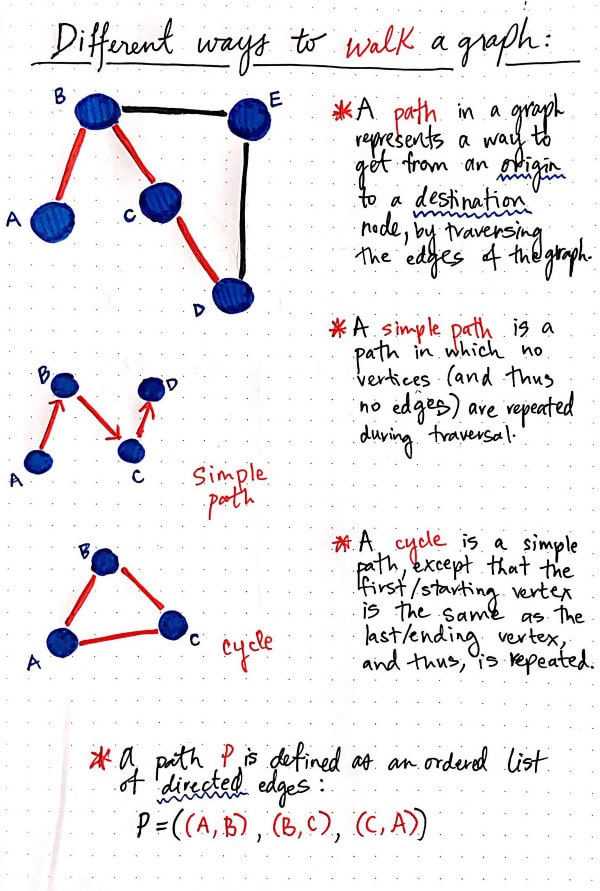 Different ways to walk a graph:
B
E
A
C
D
* A path in a graph
represents a way to
get from an origin
to a destination
node, by traversing
the edges of the graph.
* A simple path is a
path in which no
vertices (and thus
no edges) are repeated
during traversal.
B
D
A
C
simple
path
* A cycle is a simple
path, except that the
first/starting vertex
is the same as the
last/ending vertex,
and thus, is repeated.
B
A
C
cycle
* a path P is defined as an ordered list
of directed edges:
P=((A,B), (B,C), (C,A))